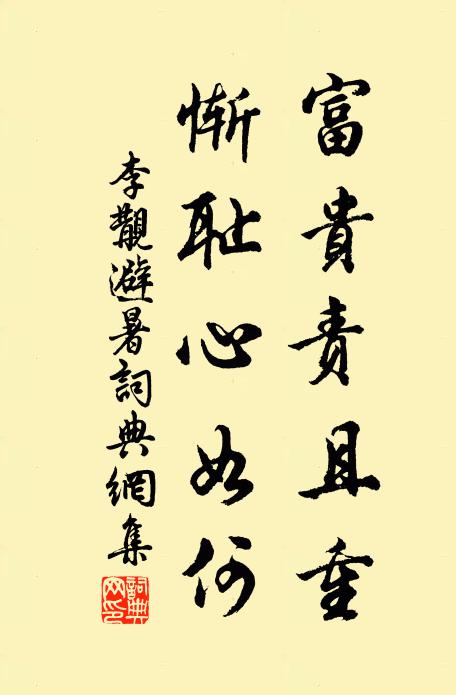 富貴責且重
慚耻心如何
李觀避暑詞典網集
詞典网印